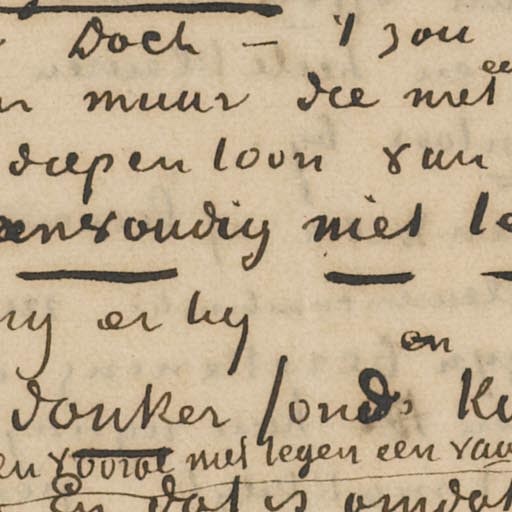 Doch – 't zou
muur die met
diepen toon van
eenvoudig niet te
er by
en
donker fonds
en vooral niet tegen een
En dat is omdat